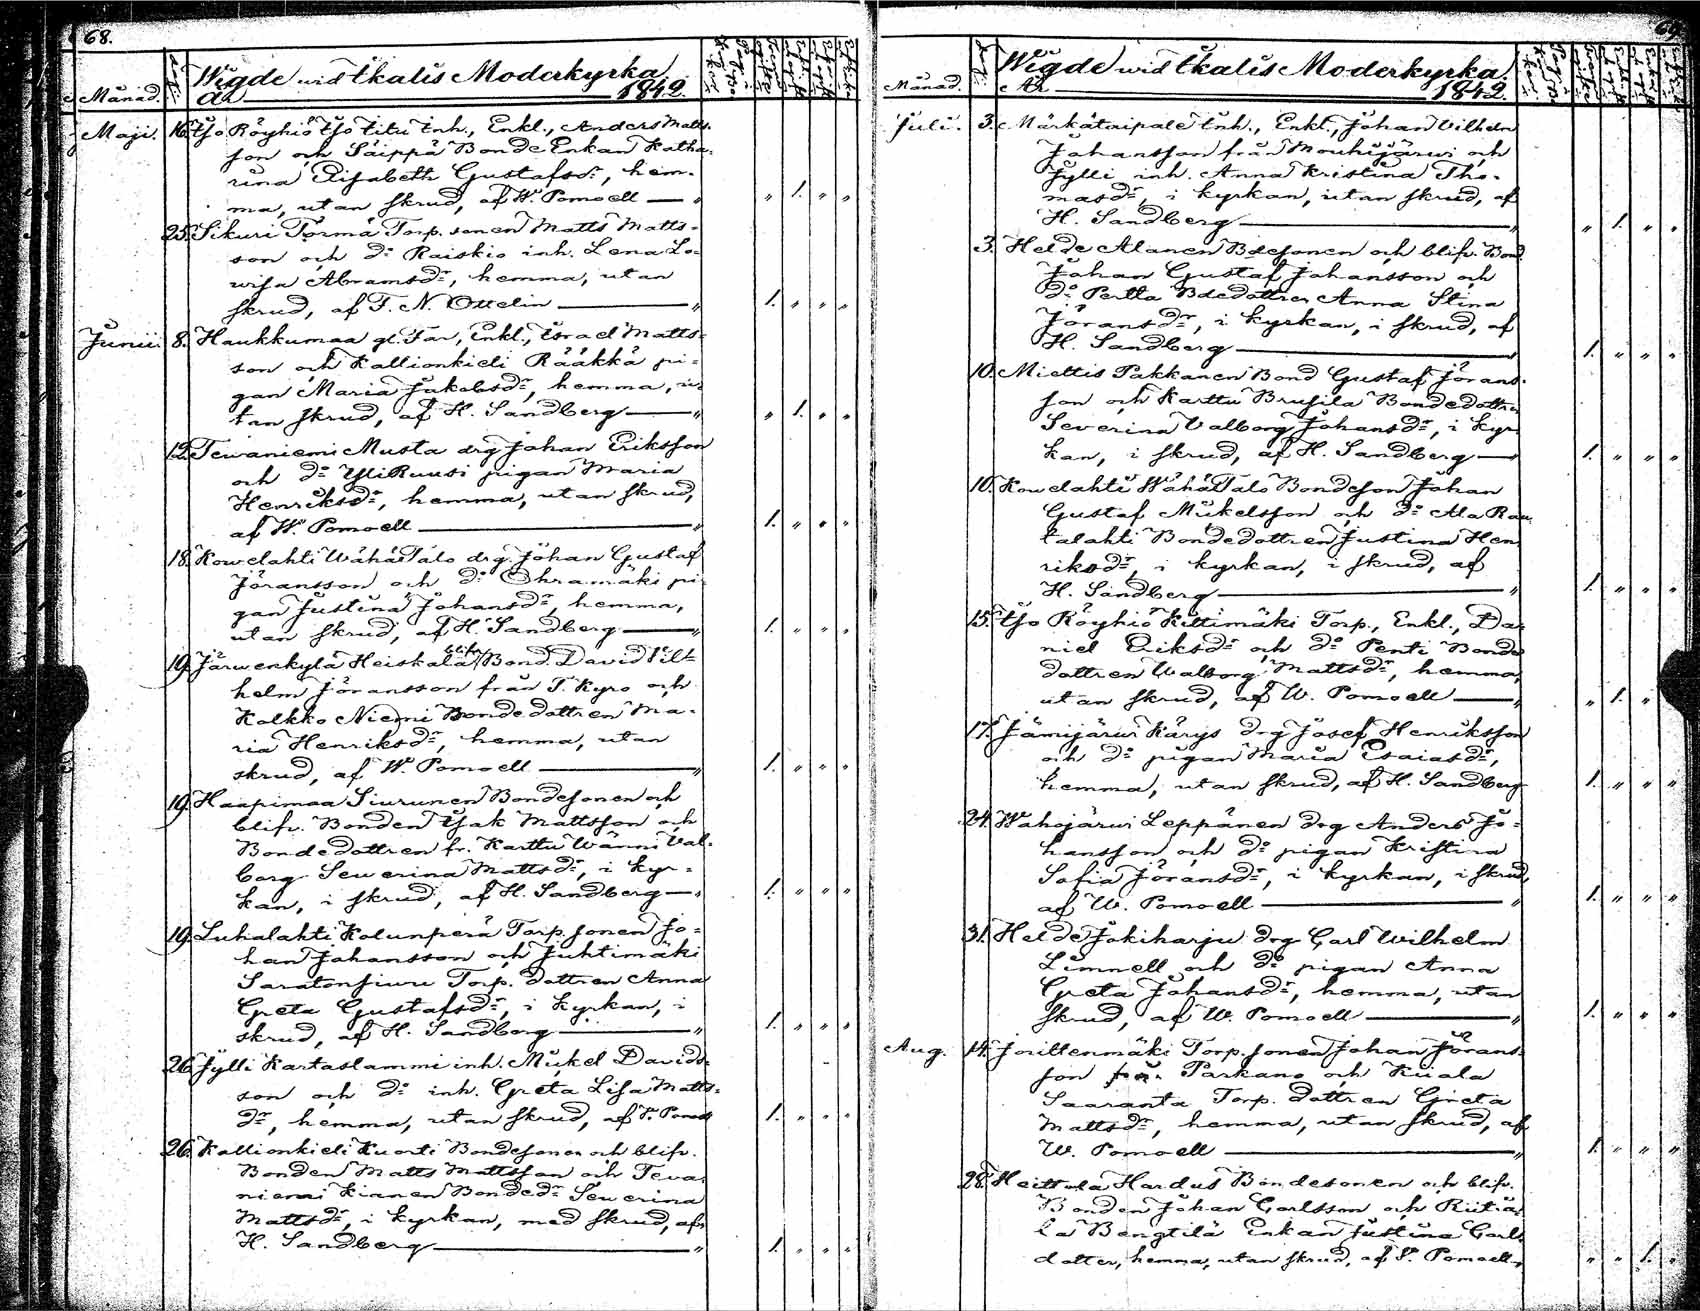 68.
Månad.
Wigde wid Ikalis Moderkyrka
År 1842.
Maji. 16. Iso Röyhiö Iso Iitu Inh., Enkl., Anders Matts-
son och Säippä Bonde Enkan Katha-
rina Elisabeth Gustafsdr, hem-
ma, utan skrud, af W. Pomoell — " " 1. " "
25. Sikuri Törmä Torp. sonen Matts Matts-
son och do Raiskio inh. Lena Lo-
wisa Abramsdr, hemma, utan
skrud, af F. N. Ottelin — " 1. " " "
Junii. 8. Haukkumaa gl. Far, Enkl., Israel Matts-
son och Kallionkieli Rääkkä pi-
gan Maria Jakobsdr, hemma, u-
tan skrud, af H. Sandberg — " " 1. " "
12. Tewaniemi Musta drg Johan Eriksson
och do YliRuusi pigan Maria
Henriksdr, hemma, utan skrud,
af W. Pomoell — " 1. " " "
18. Kowelahti WähäTalo drg Johan Gustaf
Jöransson och do Ohramäki pi-
gan Justina Johansdr, hemma,
utan skrud, af H. Sandberg — " 1. " " "
19. Järwenkylä Heiskala blifv. Bond. David Vil-
helm Jöransson från T. Kyro och
Kolkko Niemi Bondedottren Ma-
ria Henriksdr, hemma, utan
skrud, af W. Pomoell — " 1. " " "
19. Haapimaa Siurunen Bondesonen och
blifv. Bonden Isak Mattsson och
Bondedottren fr. Karttu Wänni Val-
borg Sewerina Mattsdr, i kyr-
kan, i skrud, af H. Sandberg — " 1. " " "
19. Luhalahti Kolunperä Torp. sonen Jo-
han Johansson och Juhtimäki
Saratonsiuru Torp. dottren Anna
Greta Gustafsdr, i kyrkan, i
skrud, af H. Sandberg — " 1. " " "
26. Jylli Kartastammi inh. Mikel Davids-
son och do inh. Greta Lisa Matts-
dr, hemma, utan skrud, af F. Pomoell 1. " " "
26. Kallionkieli Kuorti Bondesonen och blifv.
Bonden Matts Mattsson och Teva-
niemi Kianen Bondedr Sewerina
Mattsdr, i kyrkan, med skrud, af
H. Sandberg — " 1. " " "
69.
Månad.
Wigde wid Ikalis Moderkyrka.
År 1842.
Juli. 3. Märkätaipale Inh., Enkl., Johan Vilhelm
Johansson från Mouhijärwi och
Jylli inh. Anna Kristina Tho-
masdr, i kyrkan, utan skrud, af
H. Sandberg — " " 1. " "
3. Helde Alanen Bdesonen och blifv. Bond.
Johan Gustaf Johansson och
do Pertta Bdedottren Anna Stina
Jöransdr, i kyrkan, i skrud, af
H. Sandberg — " 1. " " "
10. Miettis Pakkanen Bond Gustaf Jörans-
son och Karttu Brusila Bondedottren
Severina Valborg Johansdr, i kyr-
kan, i skrud, af H. Sandberg — " 1. " " "
10. Kowelahti WähäTalo Bondeson Johan
Gustaf Mikelsson och do Ala Rau-
talahti Bondedottren Justina Hen-
riksdr, i kyrkan, i skrud, af
H. Sandberg — " 1. " " "
15. Iso Röyhiö Kittimäki Torp., Enkl., Da-
niel Eriksdr och do Penti Bonde
dottren Walborg Mattsdr, hemma,
utan skrud, af W. Pomoell — " " 1. " "
17. Jämijärwi Karys drg Josef Henriksson
och do pigan Maria Esaiasdr,
hemma, utan skrud, af H. Sandberg 1. " " "
24. Wahojärwi Leppänen drg Anders Jo-
hansson och do pigan Kristina
Sofia Jöransdr, i kyrkan, i skrud,
af W. Pomoell — " 1. " " "
31. Helde Jokiharju drg Carl Wilhelm
Limnell och do pigan Anna
Greta Johansdr, hemma, utan
skrud, af W. Pomoell — " 1. " " "
Aug. 14. Jorittenmäki Torp. sonen Johan Jörans-
son från Parkano och Kuiala
Saaranta Torp. dottren Greta
Mattsdr, hemma, utan skrud, af
W. Pomoell — " 1. " " "
28. Heittola Hardus Bondesonen och blifv.
Bonden Johan Carlsson och Riitiä-
la Bengtilä Enkan Justina Carls
dotter, hemma, utan skrud, af F. Pomoell " " 1. "